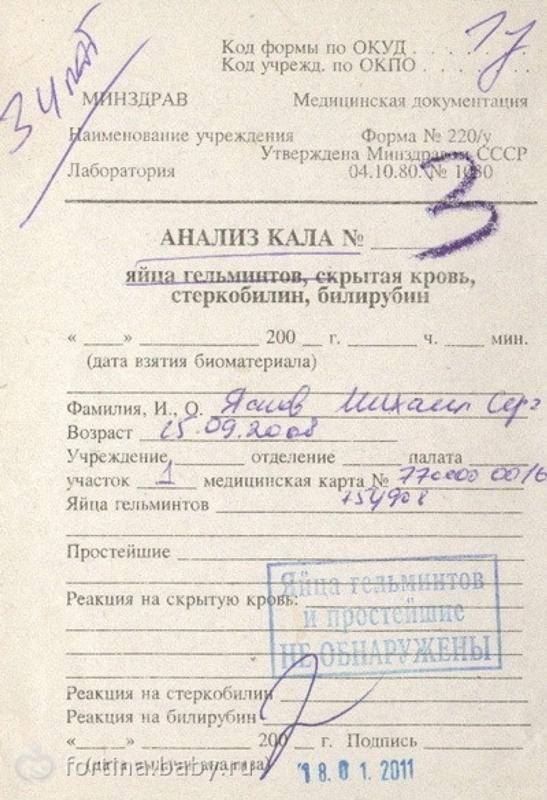 Код формы по ОКУД
Код учрежд. по ОКПО
МИНЗДРАВ Медицинская документация
Наименование учреждения Форма № 220/у
Утверждена Минздравом СССР
Лаборатория 04.10.80. № 1030
3
АНАЛИЗ КАЛА №
яйца гельминтов, скрытая кровь,
стеркобилин, билирубин
« » 200 г. ч. мин.
(дата взятия биоматериала)
Фамилия, И., О. Михаил Серг
Возраст 15.09.2008
Учреждение отделение палата
участок 1 медицинская карта №
Яйца гельминтов
Простейшие
Яйца гельминтов
и простейшие
НЕ ОБНАРУЖЕНЫ
Реакция на скрытую кровь:
Реакция на стеркобилин
Реакция на билирубин
« » 200 г. Подпись
(дата выдачи анализа)
18.01.2011
fortina.baby.ru